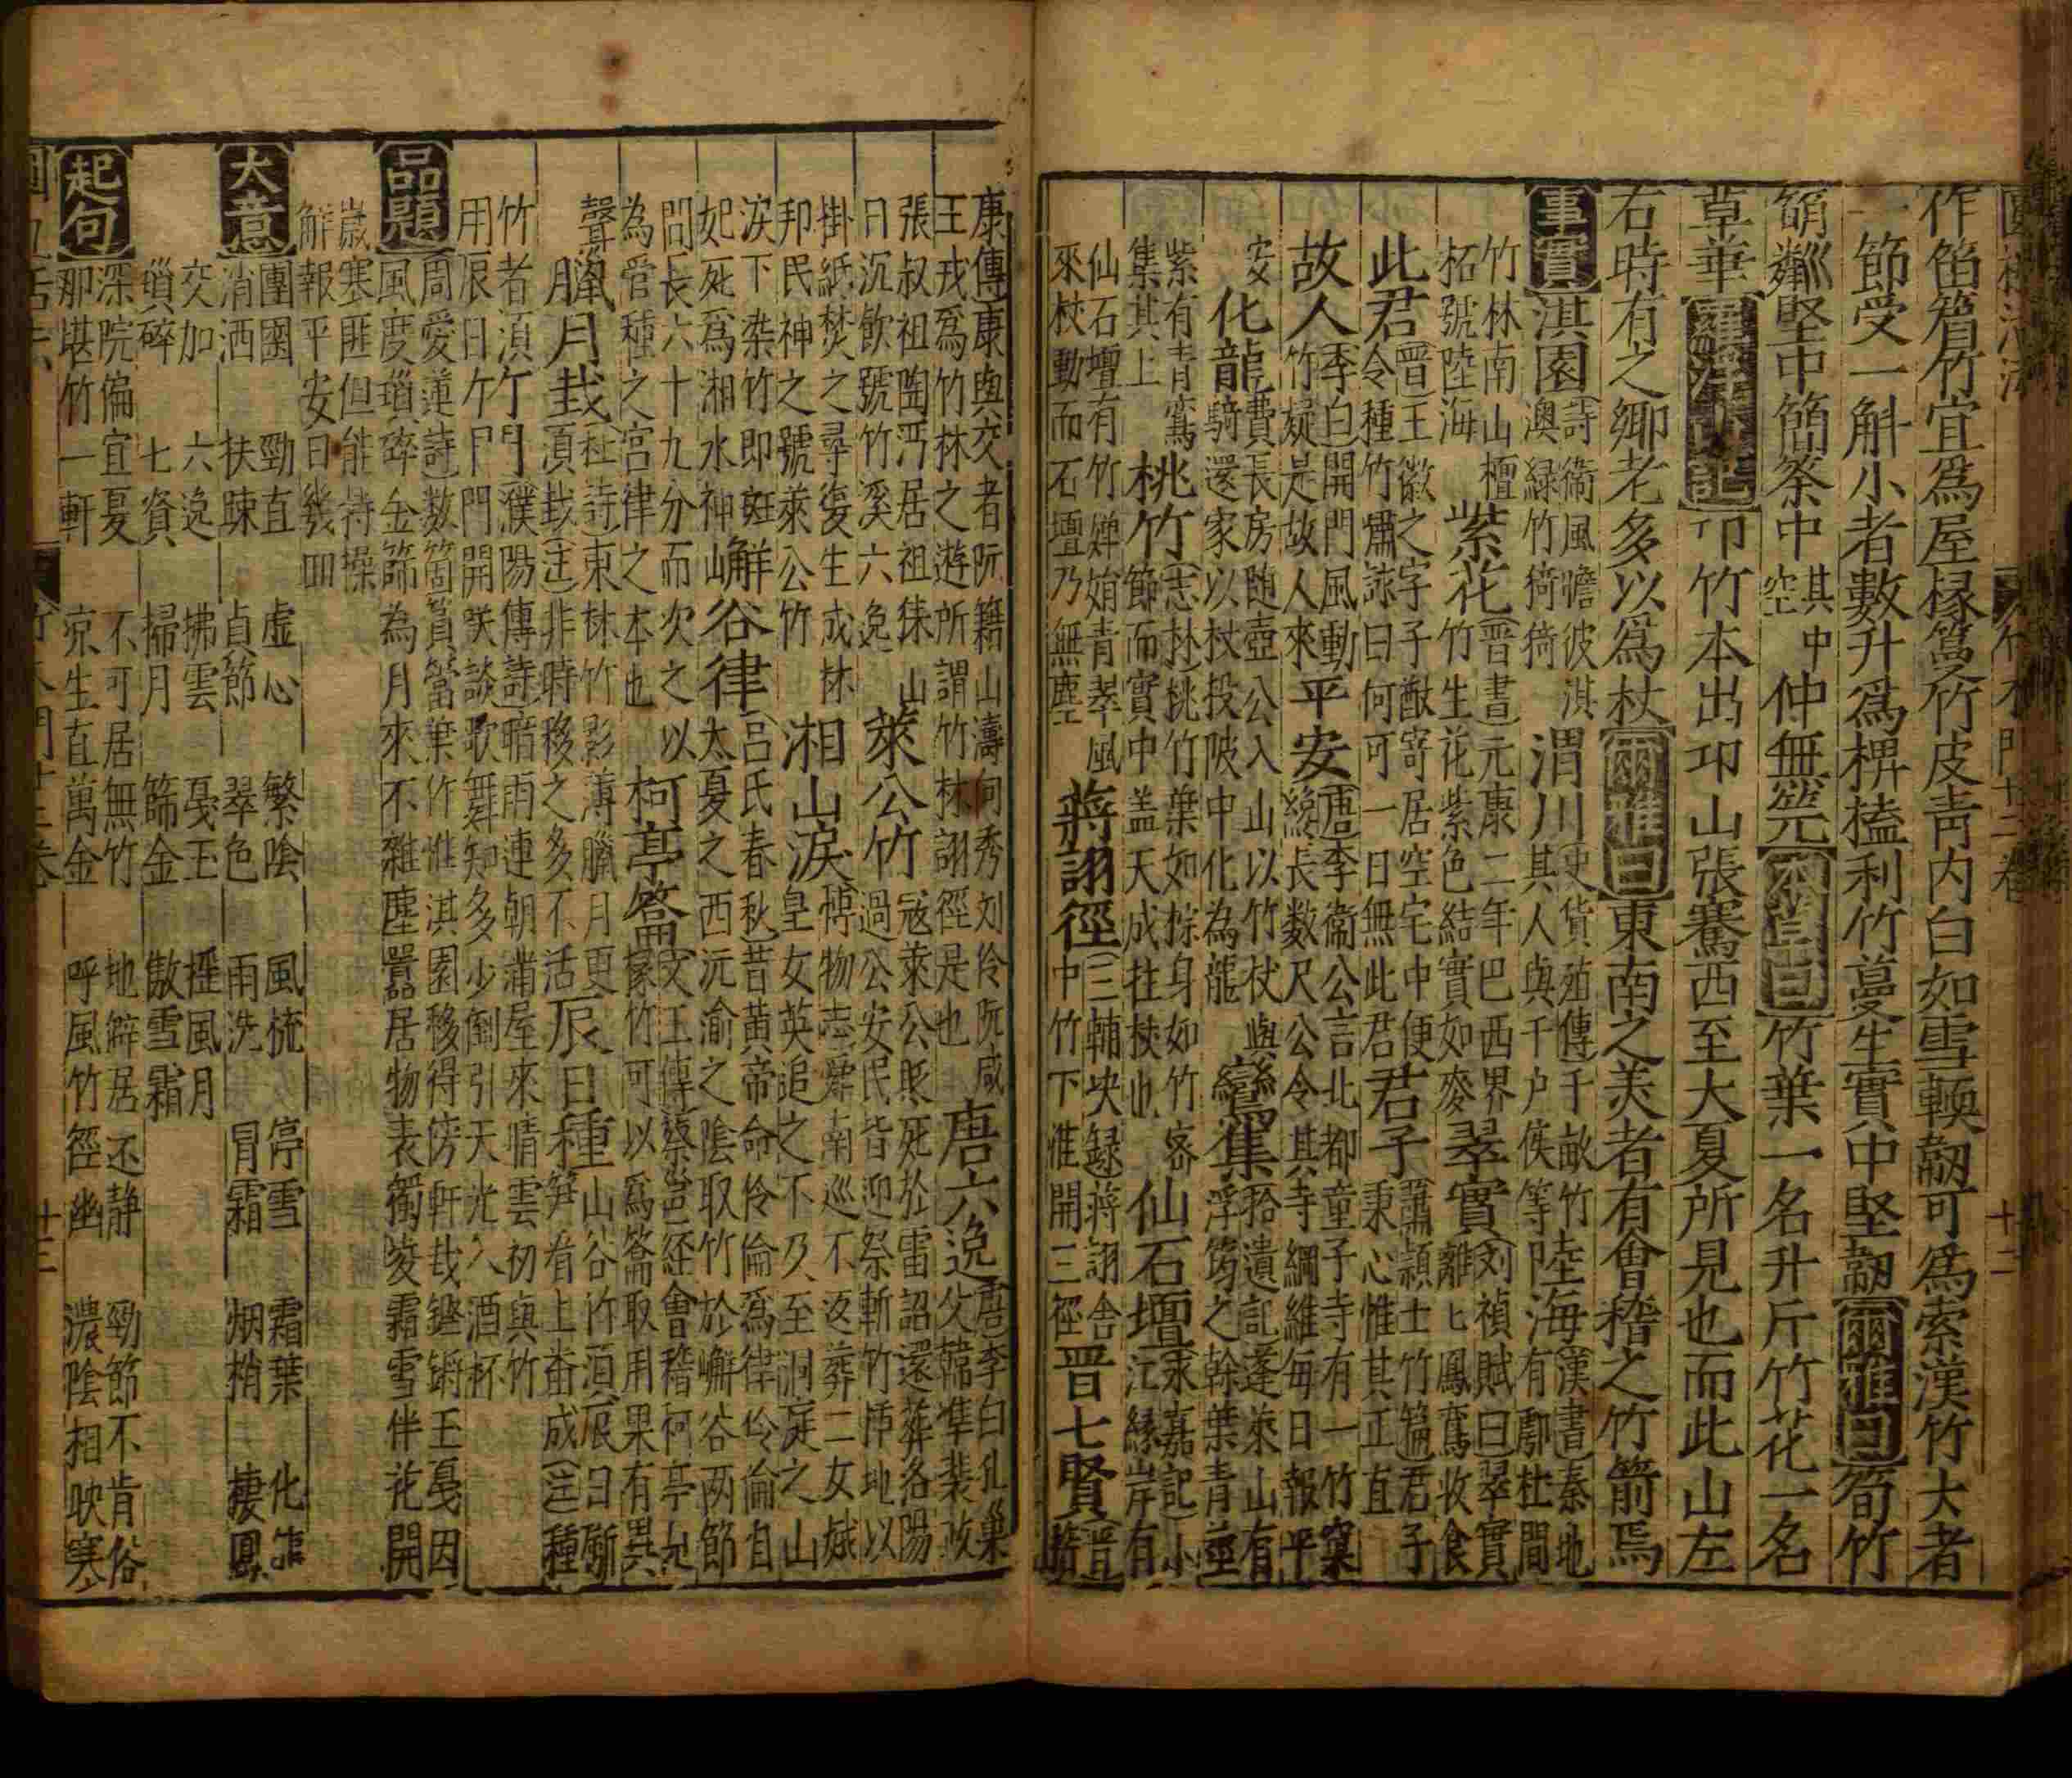 作笛䇾竹宜爲屋椽篾竹皮靑内白如雪輭韌可爲索漢竹大者
一節受一斛小者數升爲椑榼利竹蔓生實中堅韌爾雅曰筍竹
堅中簡筡中其中空仲無笐本草曰竹葉一名升斤竹花一名
草華羅浮山記卭竹本出卭山張騫西至大夏所見也而此山左
右時有之鄉老多以爲杖爾雅曰東南之美者有會稽之竹箭焉
事實淇園詩衞風瞻彼淇澳緑竹猗猗渭川史貨殖傳千畝竹其人與千户侯等陸海漢書秦地有鄠杜
竹林南山檀柘號陸海紫花晋書元康二年巴西界竹生花紫色結實如麥翠實刘禎賦曰翠實離匕鳳鸞收食
此君晋王徽之字子猷寄居空宅中便令種竹嘯詠曰何可一日無此君君子蕭頴士竹篇君子秉心惟其正直
故人李白開門風動竹疑是故人來平安唐李衞公言北都童子寺有一竹窠纔長数尺公令其寺綱維每日報平
安化龍費長房随壺公入山以竹杖與騎還家以杖投陂中化為龍鸞集拾遺記蓬萊山有浮筠之幹葉青莖
紫有青鸞集其上桃竹志林桃竹葉如棕身如竹密節而實中盖天成拄杖也仙石壇永嘉記小江緣岸有
仙石壇有竹嬋娟青翠風來枝動而石壇乃無塵蔣詡徑三輔决録蔣詡舍中竹下惟開三徑晋七賢晋嵇
康傳康與交者阮籍山濤向秀刘伶阮咸王戎爲竹林之遊所謂竹林詡徑是也唐六逸唐李白孔巢父韓凖裴政
張叔祖陶沔居祖徕山日沉飲號竹溪六逸萊公竹冦萊公貶死於雷詔還葬洛陽過公安民皆迎祭斬竹揷地以
掛紙焚之尋復生成林邦民神之號萊公竹湘山淚博物志舜南巡不返葬二女娥皇女英追之不及至洞庭之山
淚下染竹即斑妃死爲湘水神嶰谷律吕氏春秋昔黄帝命伶倫爲律伶倫自大夏之西沅渝之陰取竹於嶰谷两節
間長六十九分而次之以為管種之宫律之本也柯亭簥文王傳蔡邕經會稽柯亭見椽竹可以爲簥取用果有異
聲臘月栽杜詩東林竹影薄臘月更湏栽注非時移之多不活辰日種山谷竹湏辰日斸笋看上番成注種
竹者湏用辰日竹門濮陽傳詩暗雨連朝滿屋來晴雲初與竹門開咲談歌舞知多少倒引天光入酒杯
品題周愛蓮詩数箇篔簹葉作惟淇園移得傍軒栽鏗鏘玉戞因風度瑣碎金篩為月來不雜塵嚣居物表獨凌霜雪伴花開
歲寒匪但能持操解報平安日幾囬
大意團團　勁直　虚心　繁陰　風梳　停雪　霜葉　化龍
消洒　扶踈　貞節　翠色　雨洗　冐霜　烟梢　棲鳳
交加　六逸　拂雲　戞玉　摇風月
瑣碎　七賢　掃月　篩金　傲雪霜
起句深院偏宜夏　不可居無竹　地僻居还静　勁節不肯俗
那堪竹一軒　凉生直萬金　呼風竹徑幽　濃陰相映寒